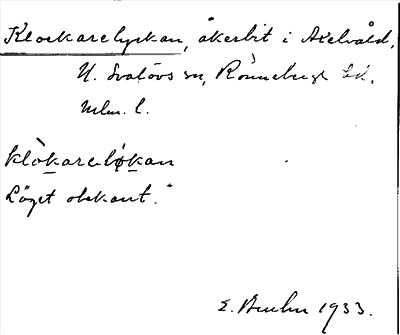 Klockarelyckan, åkerbit i Axelvåld,
N. Svalövs sn, Rönnebergs hd.
Mlm. l.
klòkarelø̀kan
Läget obekant.
E. Bruhn 1933.